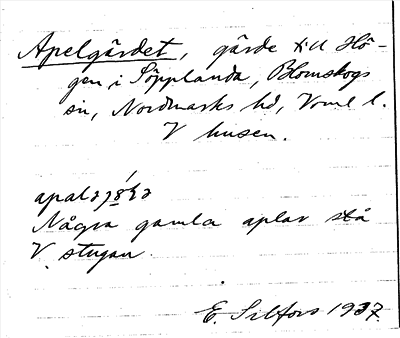 Apelgärdet, gärde till Hö-
gen i Söpplanda, Blomskogs
sn, Nordmarks hd, Vrml l.
V husen.
Några gamla aplar stå
V. stugan.
E. Silfors 1937.